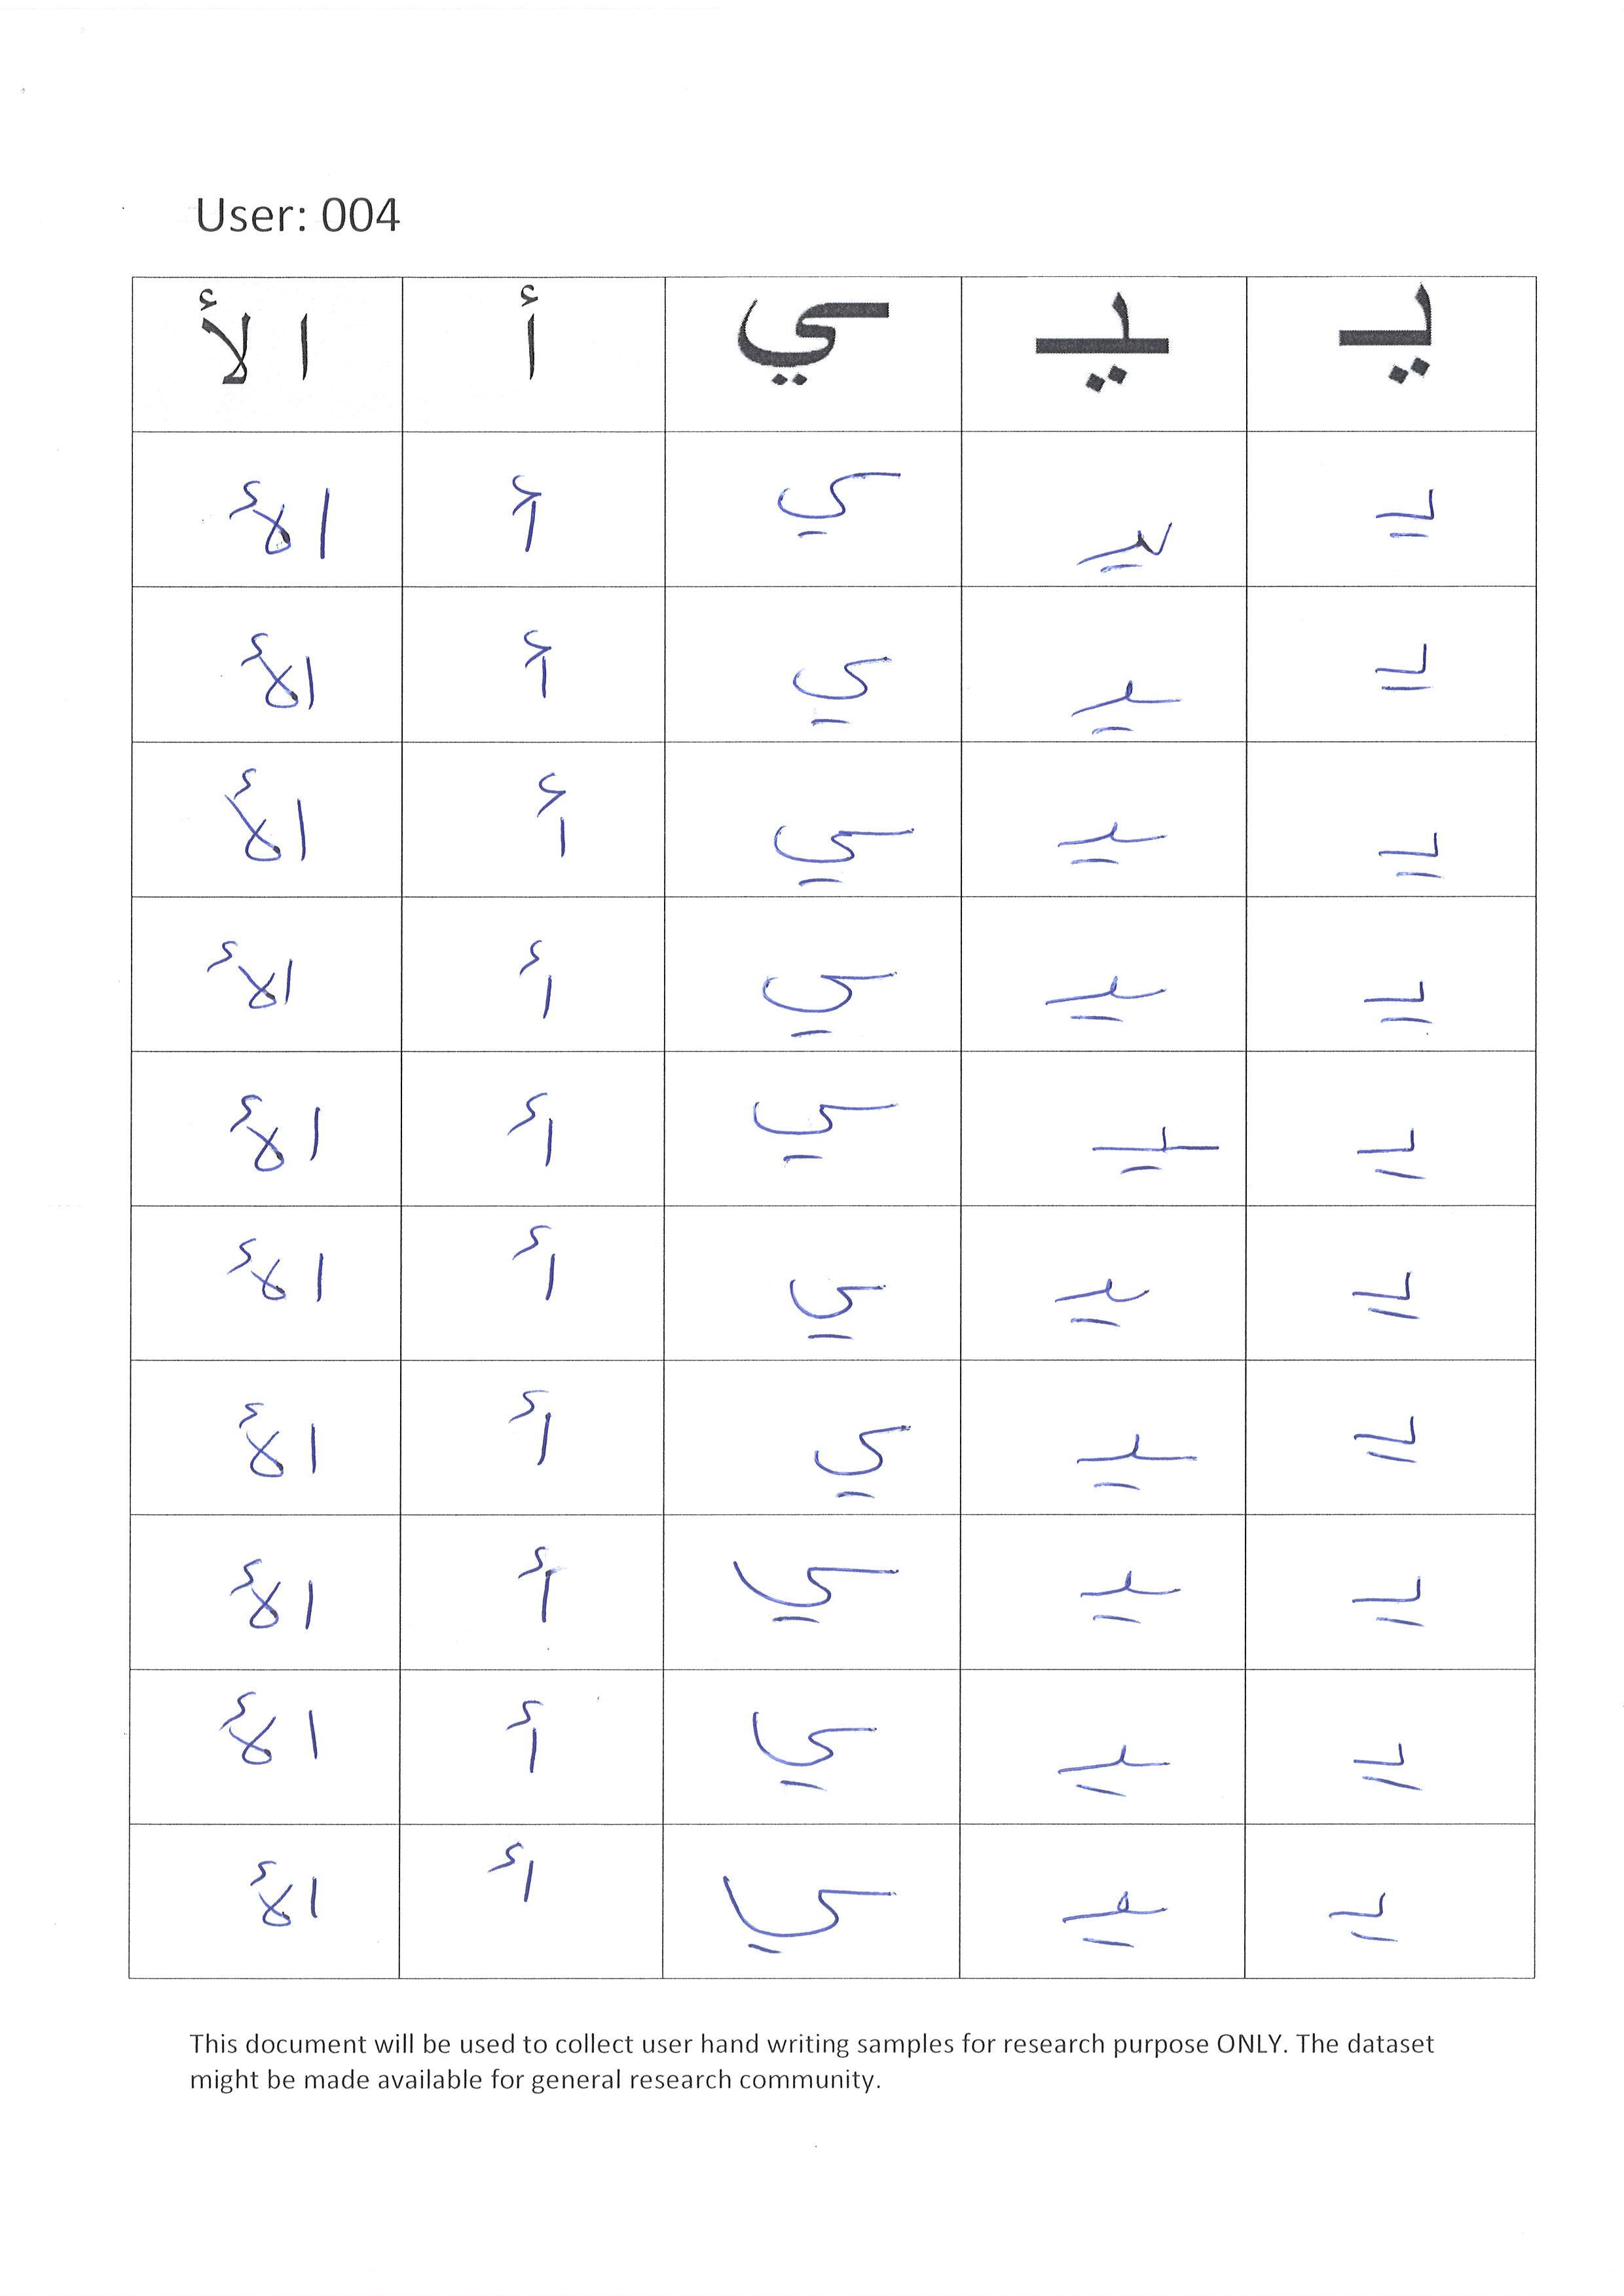 User: 004
يـ ـيـ ـي أ الأ
يـ ـيـ ـي أ الأ
يـ ـيـ ـي أ الأ
يـ ـيـ ـي أ الأ
يـ ـيـ ـي أ الأ
يـ ـيـ ـي أ الأ
يـ ـيـ ـي أ الأ
يـ ـيـ ـي أ الأ
يـ ـيـ ـي أ الأ
يـ ـيـ ـي أ الأ
يـ ـيـ ـي أ الأ
This document will be used to collect user hand writing samples for research purpose ONLY. The dataset
might be made available for general research community.